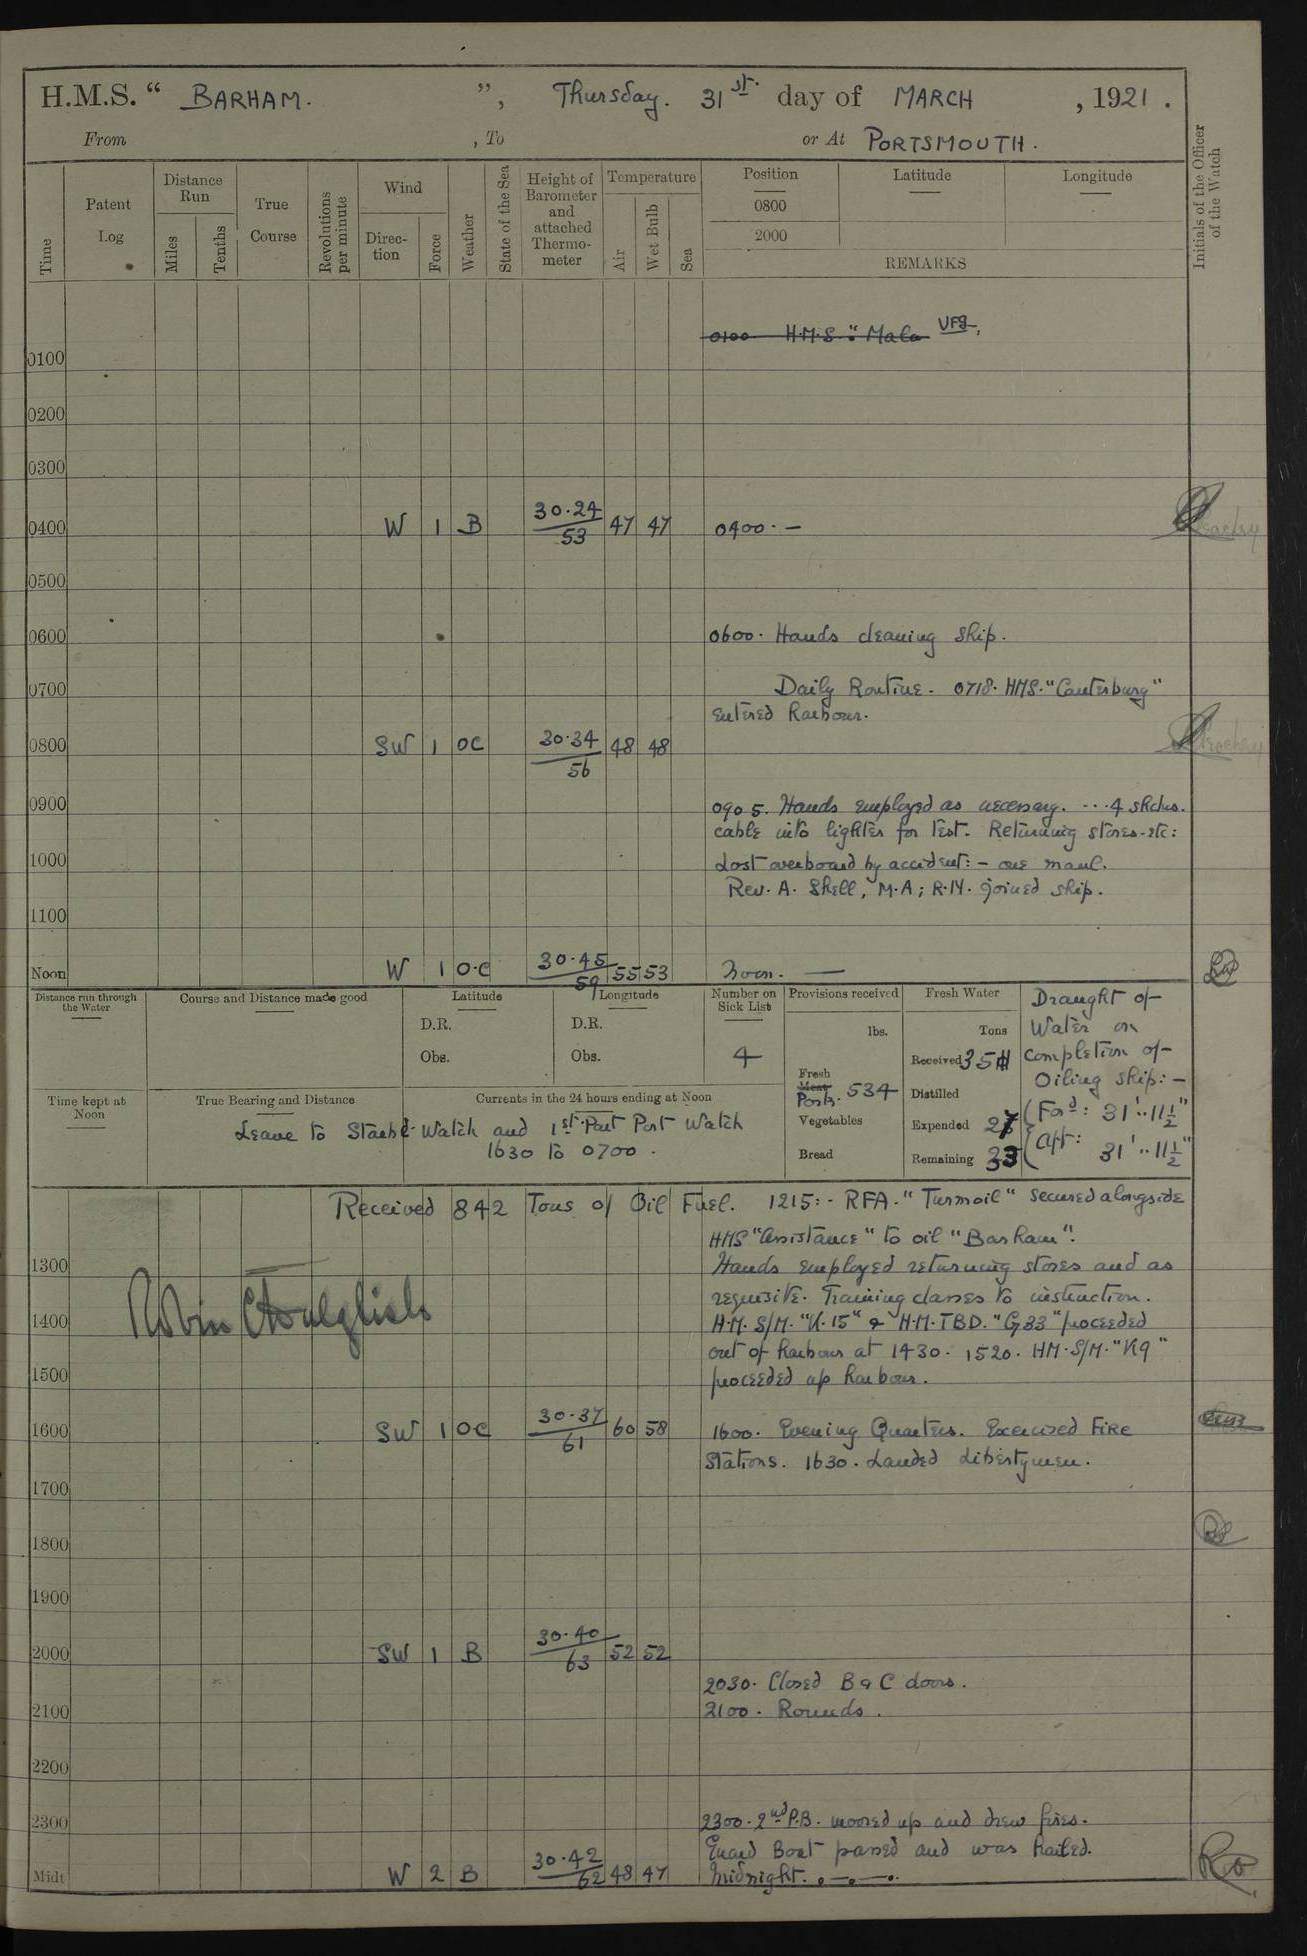 H.M.S. “ BARHAM. ”, Thursday. 31st. day of MARCH , 1921.
From , To or At PORTSMOUTH.
Time
Patent Log
Distance Run
Miles
Tenths
True Course
Revolutions per minute
Wind
Direction
Force
Weather
State of the Sea
Height of Barometer and attached Thermometer
Temperature
Air
Wet Bulb
Sea
Position
0800
2000
Latitude
Longitude
REMARKS
Initials of the Officer of the Watch
0100 H.M.S. "Mala
0100
0200
0300
0400 W 1 B 30.24 / 53 47 47 0400. —
0500
0600 0600. Hands cleaning ship.
0700 Daily Routine. 0718. HMS. "Canterbury"
entered harbour.
0800 SW 1 OC 30.34 / 56 48 48
0900 0905. Hands employed as necessary. ... 4 shcks.
cable into lighter for test. Returning stores. etc:
1000 Lost overboard by accident: - one maul.
Rev. A. Shell, M.A; R.N. joined ship.
1100
Noon W 1 O.C 30.45 / 59 55 53 Noon. —
Distance run through the Water
Course and Distance made good
Latitude
D.R.
Obs.
Longitude
D.R.
Obs.
Number on Sick List
4
Provisions received
lbs.
Fresh Meat
Pork. 534
Vegetables
Bread
Fresh Water
Tons
Received 35
Distilled
Expended
Remaining 33
Draught of
Water on
completion of
Oiling ship: -
Ford: 31'..11½"
Aft: 31'..11½"
Time kept at Noon
True Bearing and Distance
Currents in the 24 hours ending at Noon
Leave to Starbd. Watch and 1st. Part Port Watch
1630 to 0700.
Received 842 Tons of Oil Fuel. 1215: - RFA. "Turmoil" secured alongside
HMS "Assistance" to oil "Barham".
1300 Hands employed returning stores and as
requisite. Training classes to instruction.
1400 H.M. S/M. "K.15" & H.M.TBD. "G33" proceeded
out of harbour at 1430. 1520. HM.S/M. "K9"
1500 proceeded up harbour.
1600 SW 1 OC 30.37 / 61 60 58 1600. Evening Quarters. Exercised Fire
Stations. 1630. Landed Libertymen.
1700
1800
1900
2000 SW 1 B 30.40 / 63 52 52
2030. Closed B & C doors.
2100 2100. Rounds.
2200
2300 2300. 2nd P.B. moored up and drew fires.
Guard Boat passed and was hailed.
Midt W 2 B 30.42 / 62 48 47 Midnight.